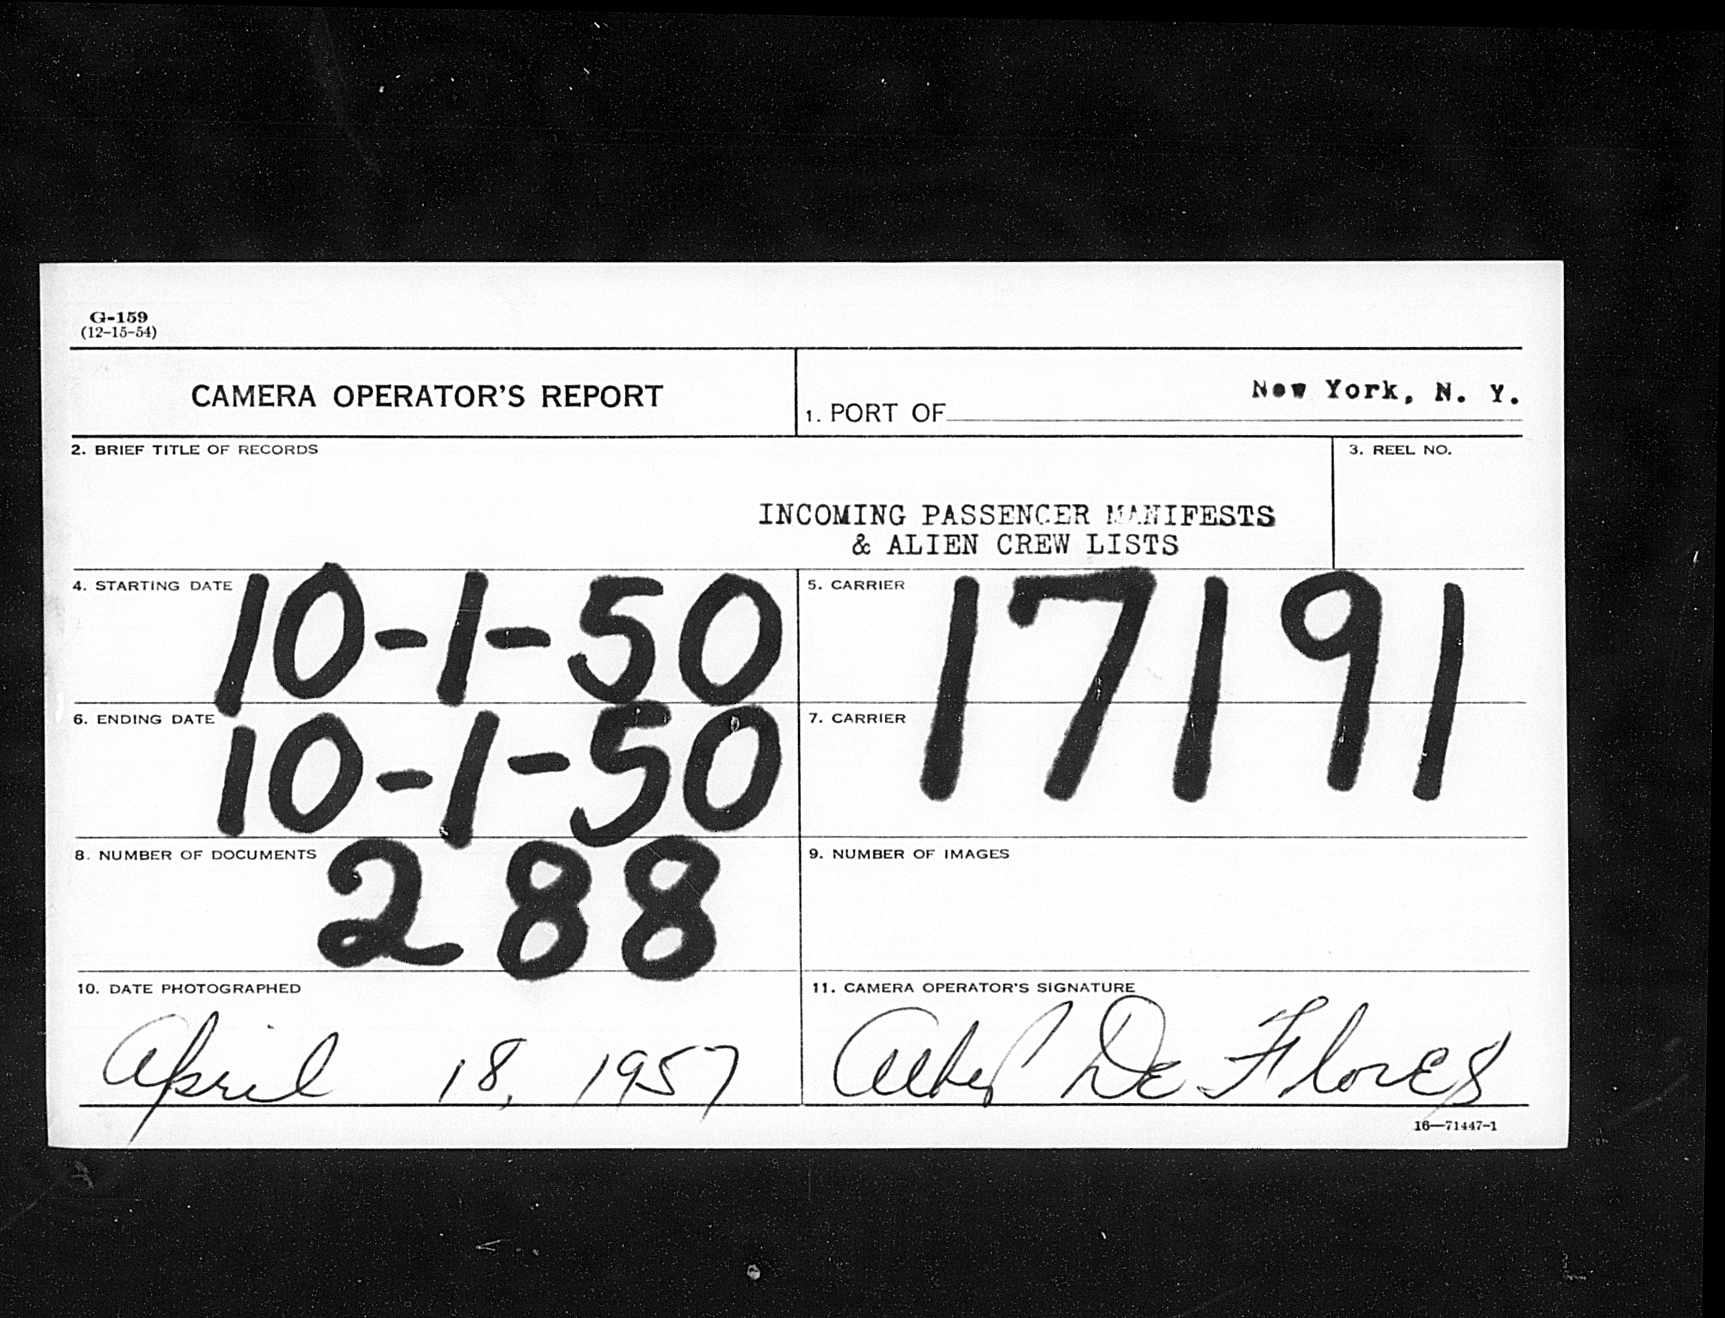 G-159
(12-15-54)
CAMERA OPERATOR'S REPORT
1. PORT OF New York, N. Y.
2. BRIEF TITLE OF RECORDS
3. REEL NO.
INCOMING PASSENGER MANIFESTS
& ALIEN CREW LISTS
4. STARTING DATE 10-1-50
5. CARRIER
17191
6. ENDING DATE 10-1-50
7. CARRIER
8. NUMBER OF DOCUMENTS 288
9. NUMBER OF IMAGES
10. DATE PHOTOGRAPHED
April 18, 1957
11. CAMERA OPERATOR'S SIGNATURE
De Flores
16—71447-1